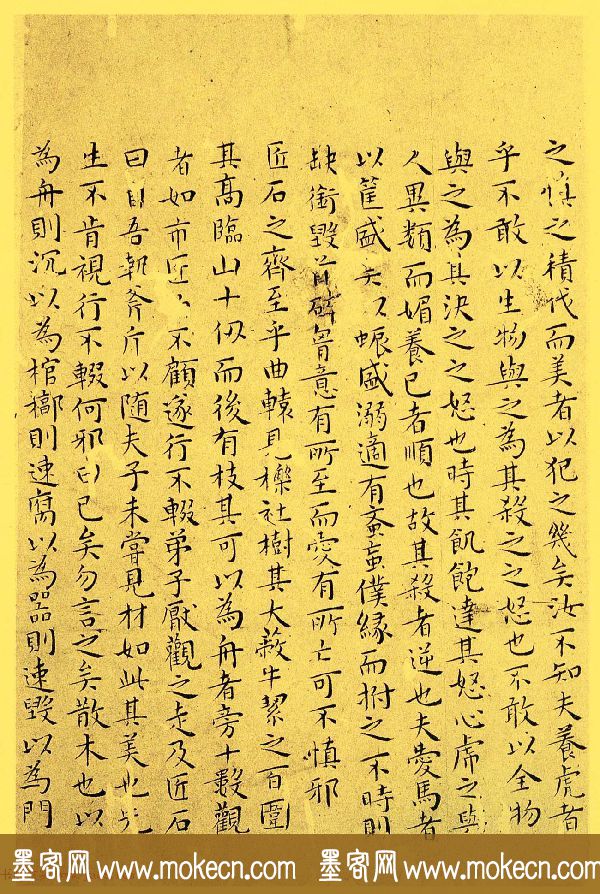 之慎之積伐而美者以犯之幾矣汝不知夫養虎者
乎不敢以生物與之為其殺之之怒也不敢以全物
與之為其決之之怒也時其飢飽達其怒心虎之與
人異類而媚養已者順也故其殺者逆也夫愛馬者
以筐盛矢以蜄盛溺適有蚉䖟僕緣而拊之不時則
缺銜毀首碎胷意有所至而愛有所亡可不慎邪
匠石之齊至乎曲轅見櫟社樹其大蔽牛絜之百圍
其高臨山十仞而後有枝其可以為舟者旁十數觀
者如市匠不顧遂行不輟弟子厭觀之走及匠石
曰自吾執斧斤以隨夫子未嘗見材如此其美也先
生不肯視行不輟何邪曰已矣勿言之矣散木也以
為舟則沉以為棺槨則速腐以為器則速毀以為門
墨客网 www.mokecn.com 墨客网 www.mokecn.com